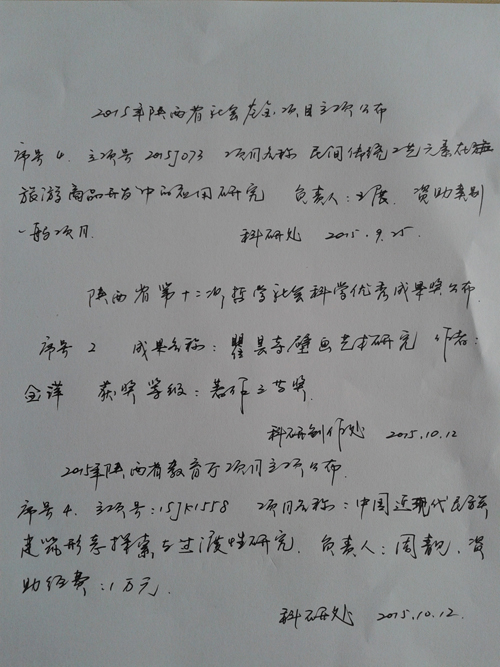 2015年陕西省社会基金项目立项公布
序号4. 立项号2015J073 项目名称 民间传统工艺元素在
旅游商品开发中的应用研究 负责人:王展. 资助类别
一般项目. 科研处 2015.9.25.
陕西省第十二次哲学社会科学优秀成果奖公布
序号2 成果名称:瞿昙寺壁画艺术研究 作者:
金萍 获奖等级:著作三等奖.
科研创作处 2015.10.12
2015年陕西省教育厅项目立项公布.
序号4. 立项号:15JK1558 项目名称:中国近现代民族
建筑形态探索与过渡性研究. 负责人:周靓. 资
助经费:1万元.
科研处 2015.10.12.